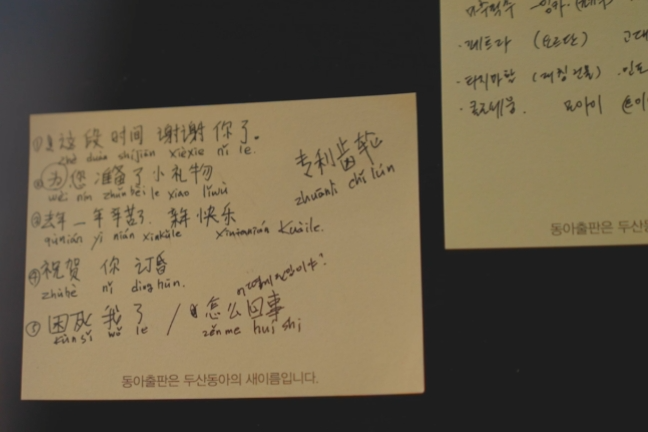 ① 这段时间 谢谢你了。
zhè duàn shíjiān xièxie nǐ le.
② 为您准备了小礼物
wèi nín zhǔnbèi le xiao lǐwù
③ 去年一年辛苦了. 新年快乐
qùnián yì nián xīnkǔle xīnnián kuàilè.
④ 祝贺 你 订婚
zhùhè nǐ dìnghūn.
⑤ 困死我了 / 怎么回事
kùnsǐ wǒ le zěnme huí shì
专利齿轮
zhuānlì chǐ lún
동아출판은 두산동아의 새이름입니다.
마추픽추
·페트라 (요르단) 고대
·타지마할
모아이
동아출판은 두산동